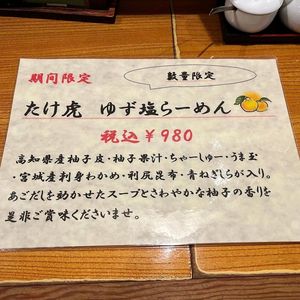 期間限定
数量限定
たけ虎 ゆず塩らーめん
税込￥980
高知県産柚子皮・柚子果汁・ちゃーしゅー・うま玉
・宮城産刺身わかめ・利尻昆布・青ねぎしらが入り。
あごだしを効かせたスープとさわやかな柚子の香りを
是非ご賞味くださいませ。